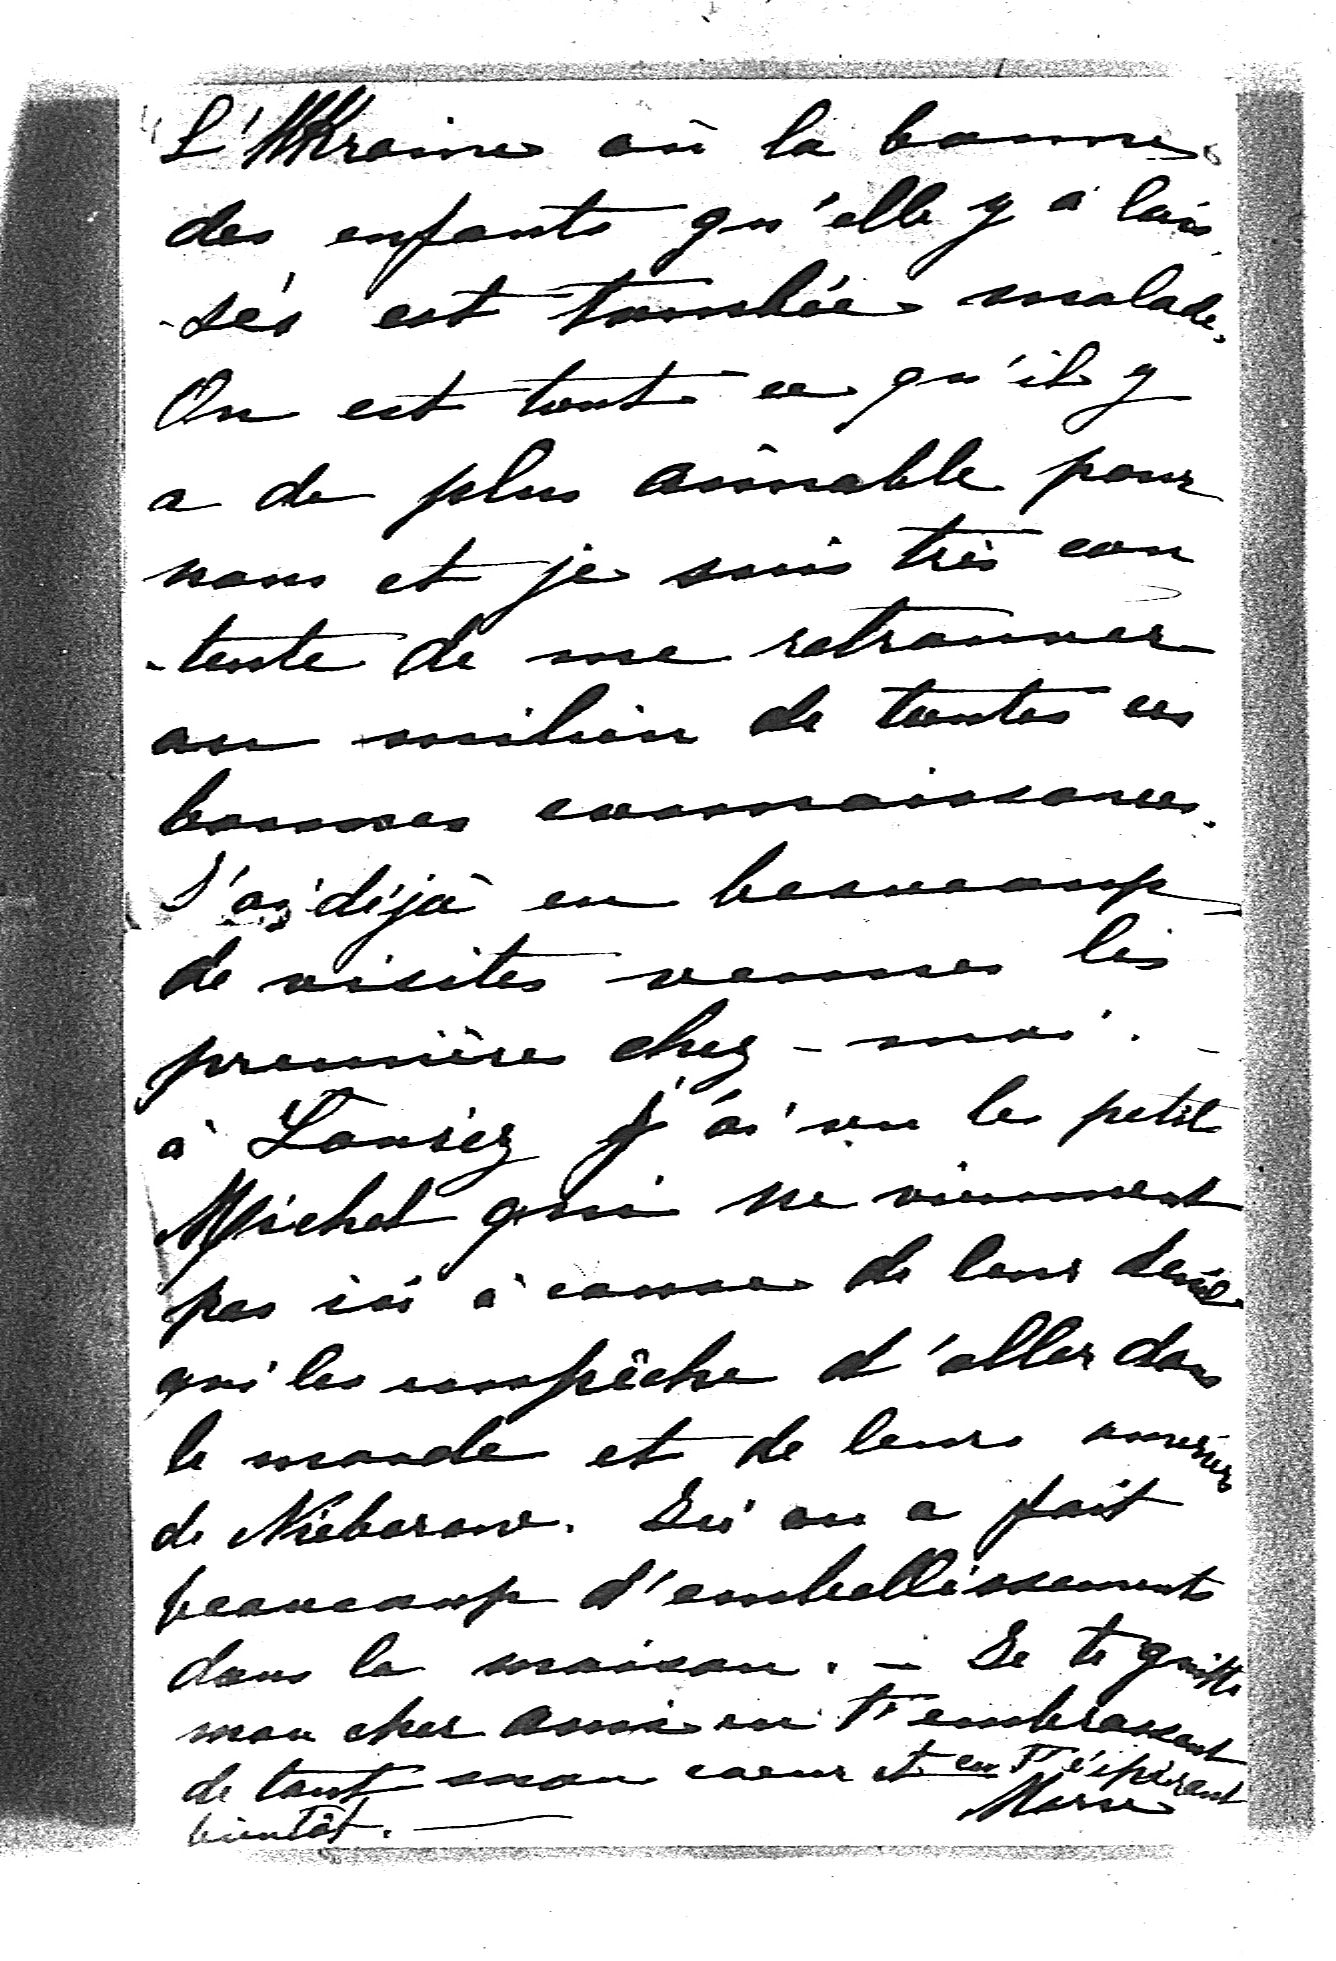 L'Ukraine où la bonne
des enfants qu'elle y a lais
-sés est tombée malade.
On est tout ce qu'il y
a de plus aimable pour
nous et je suis très con
-tente de me retrouver
au milieu de toutes ces
bonnes connaissances.
J'ai déjà eu beaucoup
de visites venues les
première chez-moi. -
à j'ai vu les petit
Michel qui ne viennent
pas ici à cause de leur deuil
qui les empêche d'aller dans
le monde et de leurs
de Nieborow. Ici on a fait
beaucoup d'embellissements
dans la maison. - Je te quitte
mon cher ami en t'embrassant
de tout mon coeur et en t'éspérant
bientôt. —
Marie